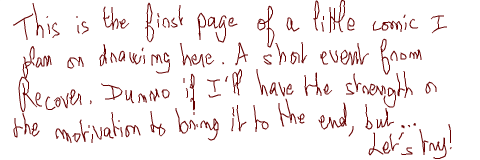 This is the first page of a little comic I
plan on drawing here. A short event from
Recover. Dunno if I'll have the strength or
the motivation to bring it to the end, but...
Let's try!